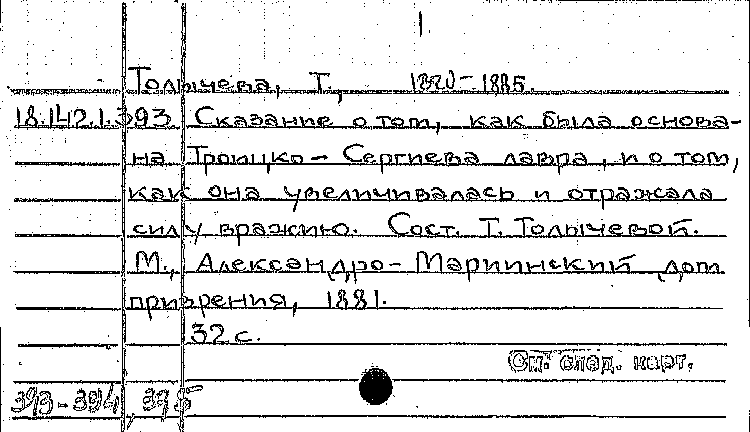 Толычева, Т., 1820-1885.
18.142.1.393 Сказание о том, как была основа-
на Троицко-Сергиева лавра, и о том,
как она увеличивалась и отражала
силу вражию. Сост. Т. Толычевой.
М., Александро-Мариинский дом
призрения, 1881.
32 с.
См. след. карт.
393-394, 395